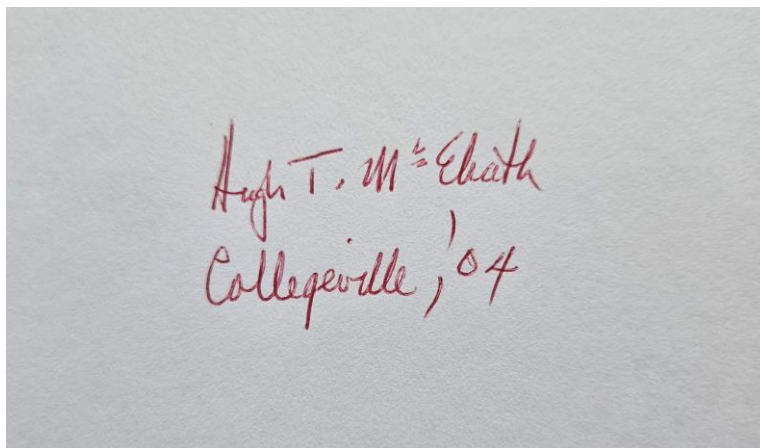 Hugh T. McElrath
Collegeville, '04